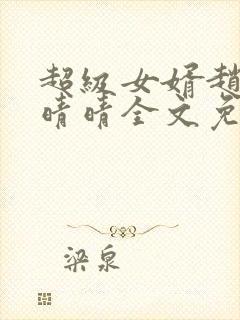 超級女婿趙
晴晴全文免
梁泉